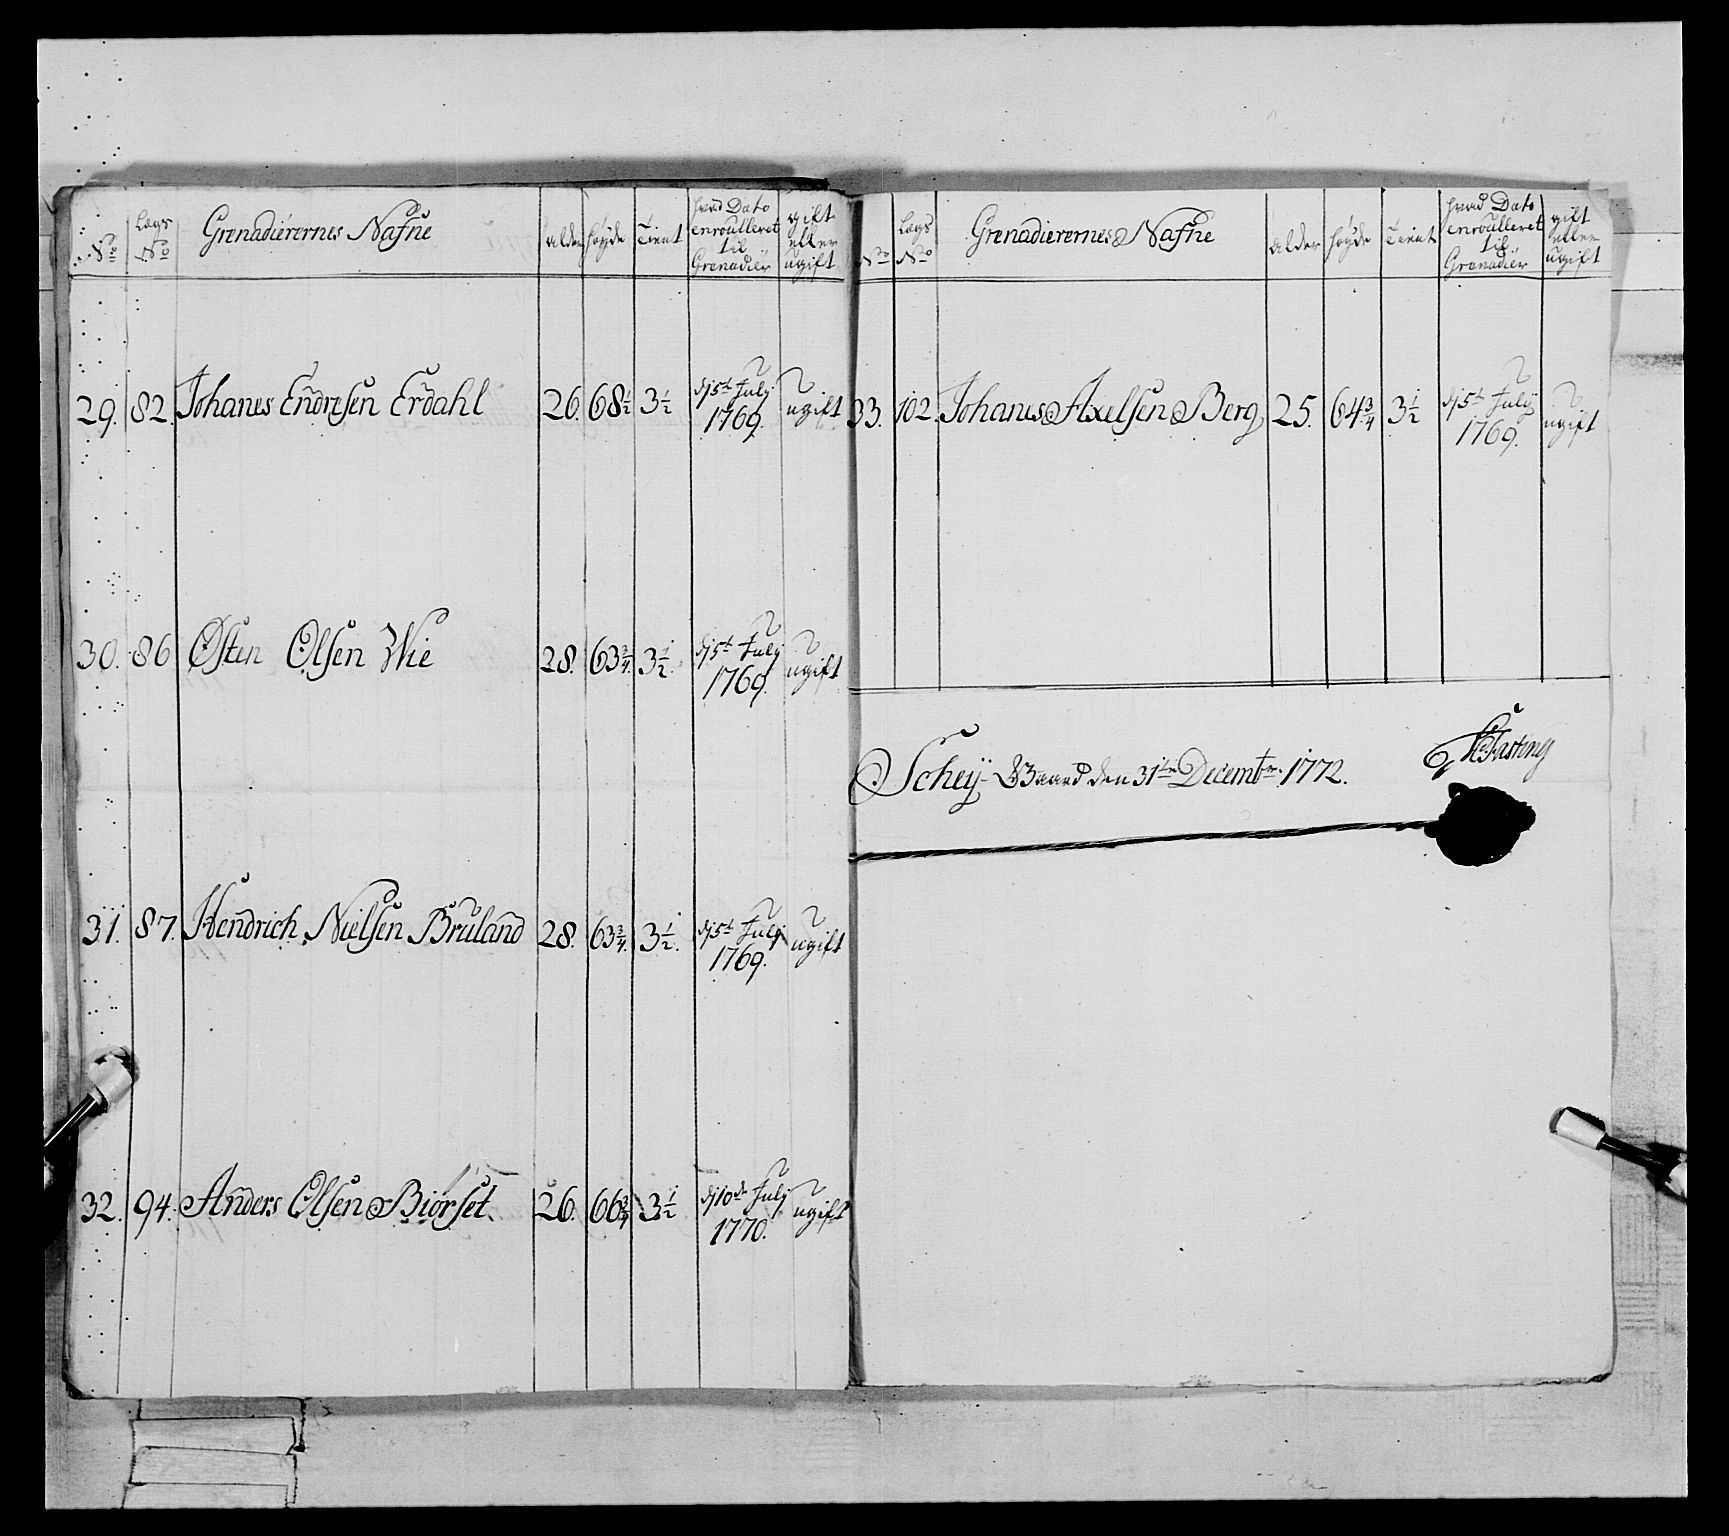 No Lægs No Grenadierernes Nafne alder høyde Tient hvad Dato enroulleret til Grenadier gift eller ugift
29. 82. Johanes Endresen Erdahl 26. 68 1/2 3 1/2 d/5te July 1769. ugift
30. 86 Østen Olsen Wie 28. 63 3/4. 3 1/2. d/5te July 1769. ugift
31. 87. Hendrich Nielsen Bruland 28. 63 3/4. 3 1/2. d/5te July 1769. ugift
32. 94. Anders Olsen Biørset 26. 66 3/4 3 1/2 d/10de July 1770. ugift
No Lægs No Grenadierernes Nafne alder høyde Tient hvad Dato enroulleret til Grenadier gift eller ugift
33. 102. Johanes Axelsen Berg 25. 64 3/4 3 1/2 d/5te July 1769. ugift
Schey-Gaard den 31te Decembr. 1772. Fasting